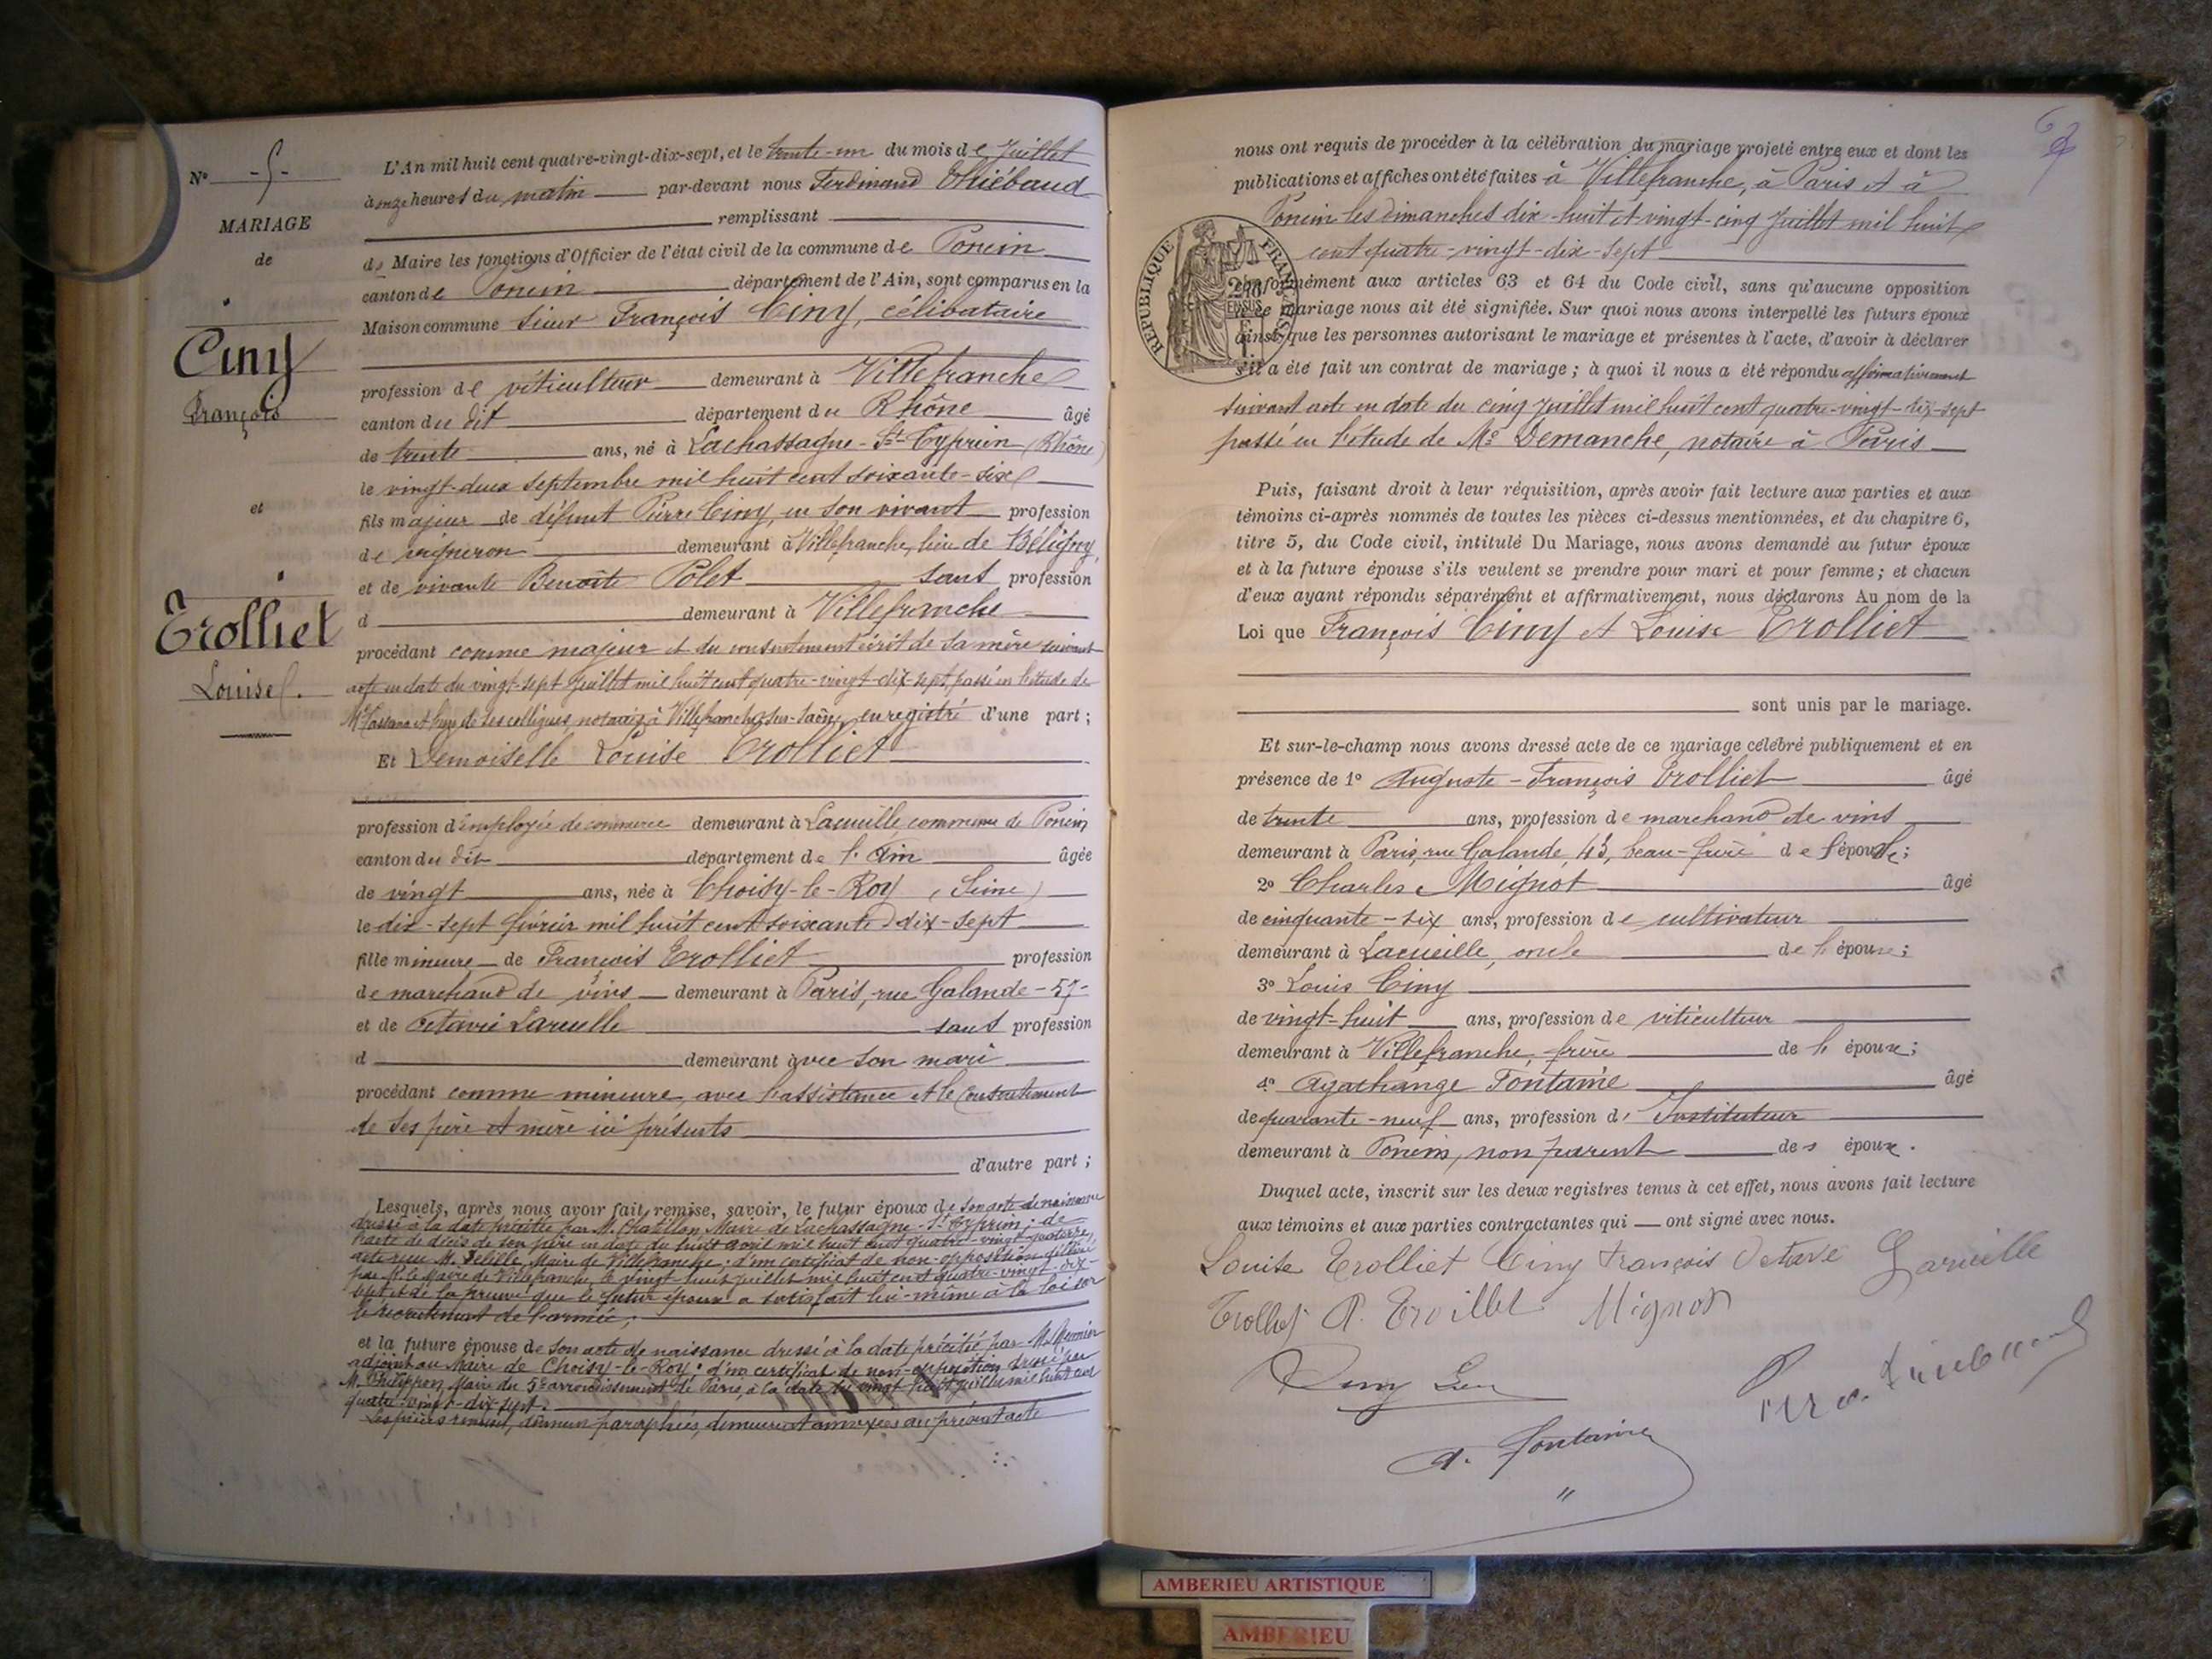 N° - 5 -
MARIAGE
de
Ciny
François
et
Trolliet
Louise.
L'An mil huit cent quatre-vingt-dix-sept, et le trente-un du mois de Juillet
à onze heures du matin par-devant nous Ferdinand Thiébaud
remplissant
de Maire les fonctions d'Officier de l'état civil de la commune de Poncin
canton de Poncin département de l'Ain, sont comparus en la
Maison commune Sieur François Ciny, célibataire
profession de viticulteur demeurant à Villefranche
canton du dit département du Rhône âgé
de trente ans, né à Lachassagne-St-Cyprien (Rhône)
le vingt-deux septembre mil huit cent soixante-six
fils majeur de défunt Pierre Ciny, en son vivant profession
de vigneron demeurant à Villefranche, lieu de Béligny,
et de vivante Benoîte Polet sans profession
d demeurant à Villefranche
procédant comme majeur et du consentement écrit de sa mère suivant
acte en date du vingt-sept Juillet mil huit cent quatre-vingt-dix-sept, passé en l'étude de
Me et l'un de ses collègues notaires à Villefranche-sur-Saône, enregistré d'une part;
Et Demoiselle Louise Trolliet
profession d'employée de commerce demeurant à Lacueille commune de Poncin
canton du dit département de l'Ain âgée
de vingt ans, née à Choisy-le-Roy (Seine)
le dix-sept février mil huit cent soixante dix-sept
fille mineure de François Trolliet profession
de marchand de vins demeurant à Paris, rue Galande - 57 -
et de Octavie Larueille sans profession
d demeurant avec son mari
procédant comme mineure avec l'assistance et le consentement
de ses père et mère ici présents
d'autre part;
Lesquels, après nous avoir fait remise, savoir, le futur époux de son acte de naissance
dressé à la date précitée par M. Chatillon Maire de Lachassagne-St Cyprien; de
l'acte de décès de son père en date du huit avril mil huit cent quatre-vingt-quatorze,
acte reçu M. Maire de Villefranche; d'un certificat de non-opposition délivré
par M. le Maire de Villefranche, le vingt-huit juillet mil huit cent quatre-vingt-dix-
sept et de la preuve que le futur époux a satisfait lui-même à la loi sur
le recrutement de l'armée;
et la future épouse de son acte de naissance dressé à la date précitée par M.
adjoint au Maire de Choisy-le-Roy; d'un certificat de non-opposition dressé par
M. Maire du 5e arrondissement de Paris, à la date du vingt-huit juillet mil huit cent
quatre-vingt-dix-sept.
Les pièces remises, dûment paraphées, demeurent annexées au présent acte
nous ont requis de procéder à la célébration du mariage projeté entre eux et dont les
publications et affiches ont été faites à Villefranche, à Paris et à
Poncin les dimanches dix-huit et vingt-cinq Juillet mil huit
cent quatre-vingt-dix-sept
RÉPUBLIQUE FRANÇAISE
conformément aux articles 63 et 64 du Code civil, sans qu'aucune opposition
à ce mariage nous ait été signifiée. Sur quoi nous avons interpellé les futurs époux
ainsi que les personnes autorisant le mariage et présentes à l'acte, d'avoir à déclarer
s'il a été fait un contrat de mariage; à quoi il nous a été répondu affirmativement
suivant acte en date du cinq Juillet mil huit cent quatre-vingt-dix-sept
passé en l'étude de Me Demanche, notaire à Paris
Puis, faisant droit à leur réquisition, après avoir fait lecture aux parties et aux
témoins ci-après nommés de toutes les pièces ci-dessus mentionnées, et du chapitre 6,
titre 5, du Code civil, intitulé Du Mariage, nous avons demandé au futur époux
et à la future épouse s'ils veulent se prendre pour mari et pour femme; et chacun
d'eux ayant répondu séparément et affirmativement, nous déclarons Au nom de la
Loi que François Ciny et Louise Trolliet
sont unis par le mariage.
Et sur-le-champ nous avons dressé acte de ce mariage célébré publiquement et en
présence de 1° Auguste-François Trolliet âgé
de trente ans, profession de marchand de vins
demeurant à Paris, rue Galande, 45, beau-frère de l'épouse;
2° Charles Mignot âgé
de cinquante-six ans, profession de cultivateur
demeurant à Lacueille, oncle de l'épouse;
3° Louis Ciny
de vingt-huit ans, profession de viticulteur
demeurant à Villefranche, frère de l'époux;
4° Agathange Fontaine âgé
de quarante-neuf ans, profession d'Instituteur
demeurant à Poncin, non parent des époux.
Duquel acte, inscrit sur les deux registres tenus à cet effet, nous avons fait lecture
aux témoins et aux parties contractantes qui ont signé avec nous.
Louise Trolliet Ciny François Octavie Larueille
Trolliet A. Trolliet Mignot
A. Fontaine
AMBERIEU ARTISTIQUE
AMBERIEU